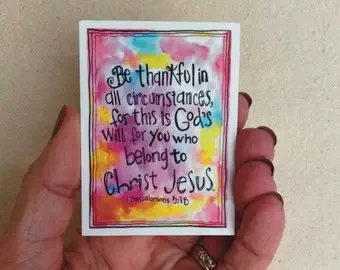 Be thankful in
all circumstances,
for this is God's
will for you who
belong to
Christ Jesus.
Thessalonians 5:18